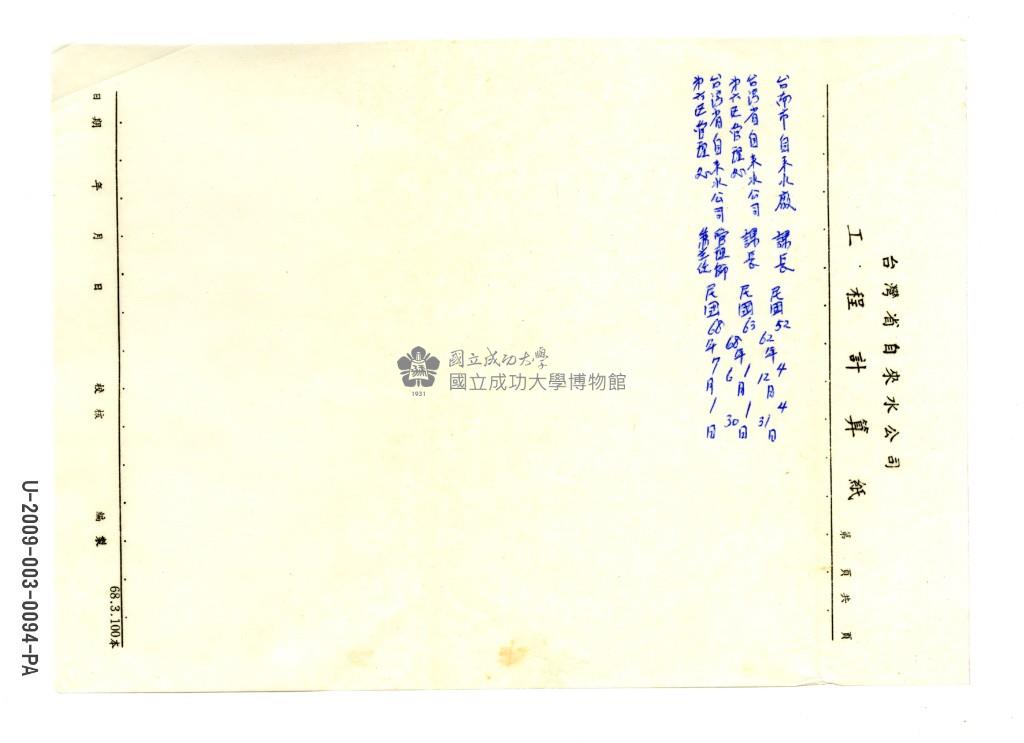 台灣省自來水公司
工程計算紙
第 頁共 頁
台南市自來水廠 課長 民國52 62年4 12月4 31日
台灣省自來水公司
第六區管理處 課長 民國63 68年1 6月1 30日
台灣省自來水公司
第六區管理處 管理師 民國68年7月1日
日期 年 月 日 校核 編製
68.3.100本
國立成功大學
國立成功大學博物館
1931
U-2009-003-0094-PA